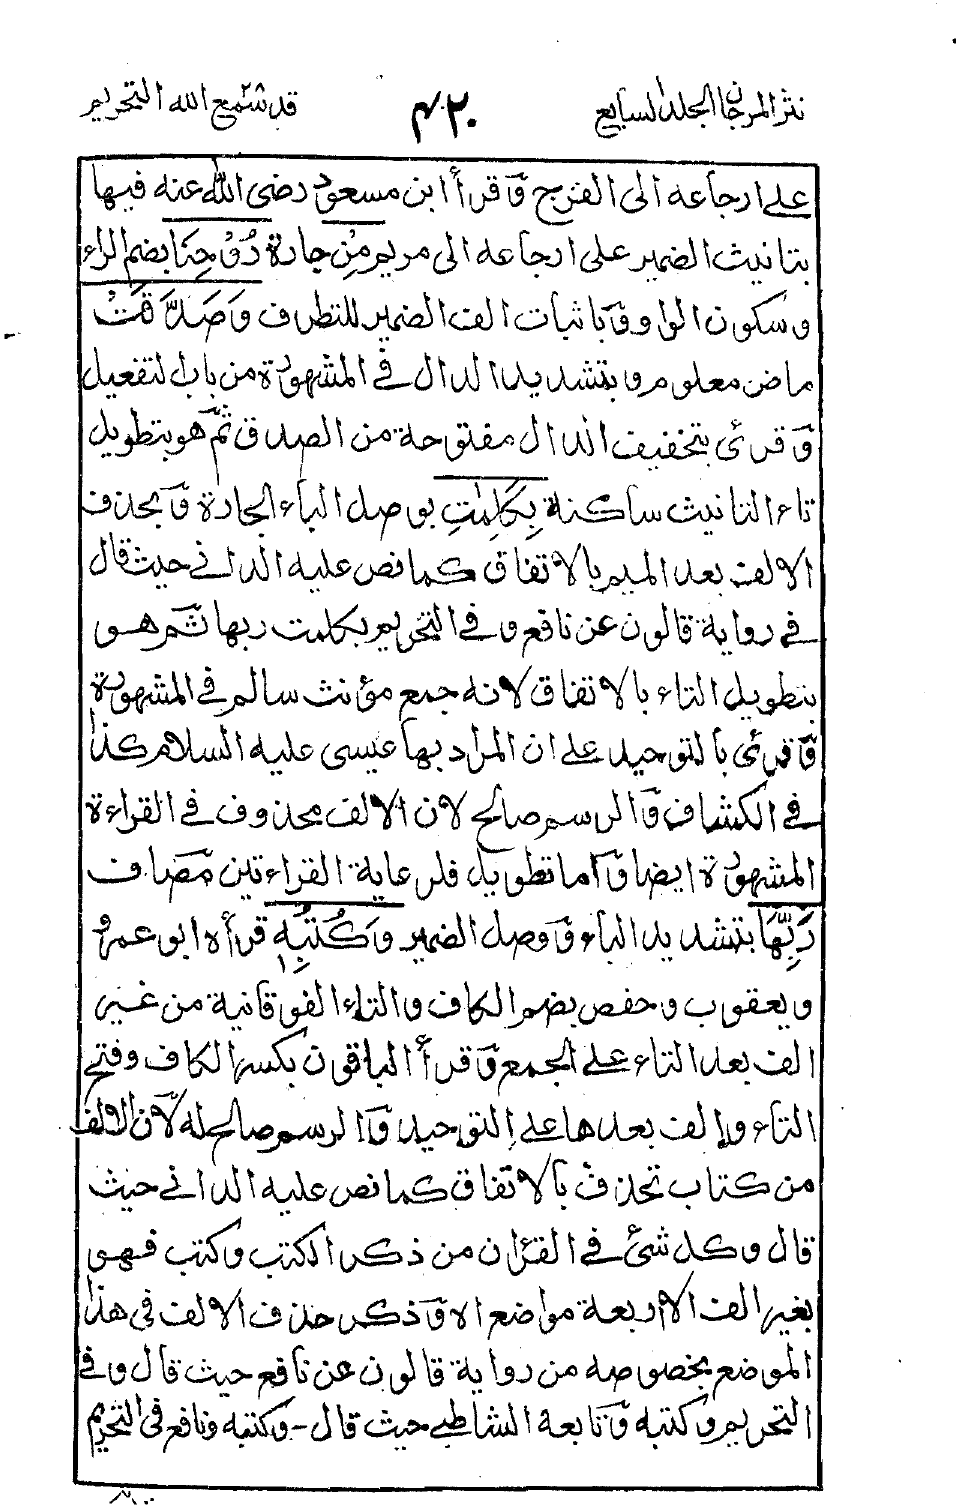 نثر المرجان الجلد السابع ۴۲۰ قد سمع الله التحريم
على ارجاعه الى الفرج وَقرأ ابن مسعود رضى الله عنه فيها
بتانيث الضمير على ارجاعه الى مريم مِن جارة رُّوْحِنَا بضم الراء
وسكون الواو وَباثبات الف الضمير للتطرف وَصَدَّقَتْ
ماض معلوم وبتشديد الدال في المشهورة من باب التفعيل
وَقرئ بتخفيف الدال مفتوحة من الصدق ثمّ هو بتطويل
تاء التانيث ساكنة بِكَلِمٰتِ بوصل الباء الجارة وَبحذف
الالف بعد الميم بالاتفاق كما نص عليه الدانى حيث قال
في رواية قالون عن نافع وفى التحريم بكلمت ربها ثم هو
بتطويل التاء بالاتفاق لانه جمع مؤنث سالم فى المشهورة
وَقرئ بالتوحيد على ان المراد بها عيسى عليه السلام كذا
فى الكشاف وَالرسم صالح لان الالف محذوف فى القراءة
المشهورة ايضا وَاما تطويل فلرعاية القراءتين مضاف
رَبِّهَا بتشديد الباء وَوصل الضمير وَكُتُبِهٖ قرأه ابو عمرو
ويعقوب وحفص بضم الكاف والتاء الفوقانية من غير
الف بعد التاء على الجمع وَقرأ الباقون بكسر الكاف وفتح
التاء والف بعدها على التوحيد وَالرسم صالح له لان الالف
من كتاب تحذف بالاتفاق كما نص عليه الدانى حيث
قال وكل شئ فى القرٰان من ذكر الكتب وكتب فهو
بغير الف الا اربعة مواضع الا وَذكر حذف الالف فى هذا
الموضع بخصوصه من رواية قالون عن نافع حيث قال وفى
التحريم وكتبه وَتابعه الشاطبى حيث قال - وكتبه ونافع فى التحريم